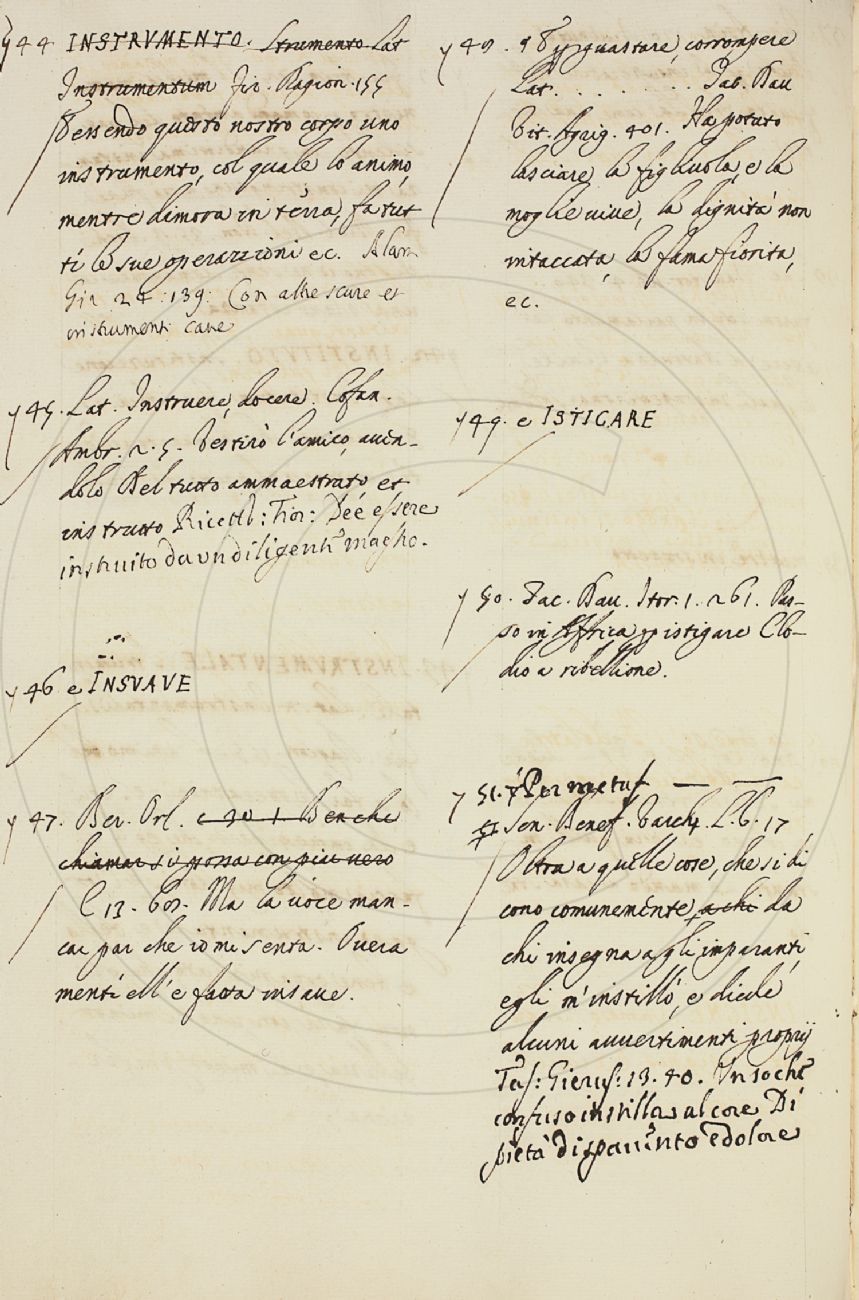 44 INSTRVMENTO. Strumento Lat
Instrumentum Fir. Ragion. 155
Essendo questo nostro corpo uno
instrumento, col quale lo animo,
mentre dimora in terra, fa tut
ti le sue operazzioni ec. Alam
Gir 24:139: Con altre scure et
instrumenti cave
45. Lat. Instruere, docere. Cofan.
Ambr. 2. 5. Vestirò l'amico, aven-
dolo del tutto ammaestrato, et
instrutto Ricett: Fior: Dee essere
instruito da un diligente maestro.
46 e INSVAVE
47. Ber. Orl. c 40 1 Benche
chiamarsi grossa con piu vero
C 13. 60. Ma la uoce man-
car par che io mi senta. Overa
menti ell'e fatta insaue.
48. guastare, corrompere
Lat. . . . . . . . Dav.
Vit. Agrig. 401. Ha potuto
lasciare la figliuola, e la
moglie uiue, la dignità non
intaccata, la fama fiorita,
ec.
49. e ISTIGARE
50. Dav. Stor. 1. 261. Pas-
so in Affrica p istigare Clo-
dio a ribellione.
51. Per metaf
Sen. Benef. Varch. L. 6. 17
Oltra a quelle cose, che si di
cono comunemente, a chi da
chi insegna agli imparanti,
egli m'instillò, e diede
alcuni avvertimenti proprij
Tass: Gierus: 13. 40. Un so che
confuso instilla al core Di
pietà di spavento e dolore